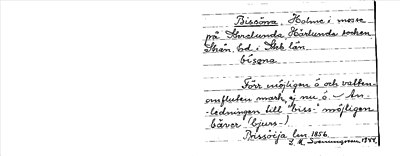 Bissöna. Holme i mosse
på Gvralunda, Härlunda socken,
Skån. bd. i Skb län.
bisona
Förr möjligen ö och vatten-
omfluten mark, ej nu ö. An-
ledningen till "biss-" möjligen
bäver (bjurs-).
Bissöija len 1856.
S. M. Svenningsson 1944.